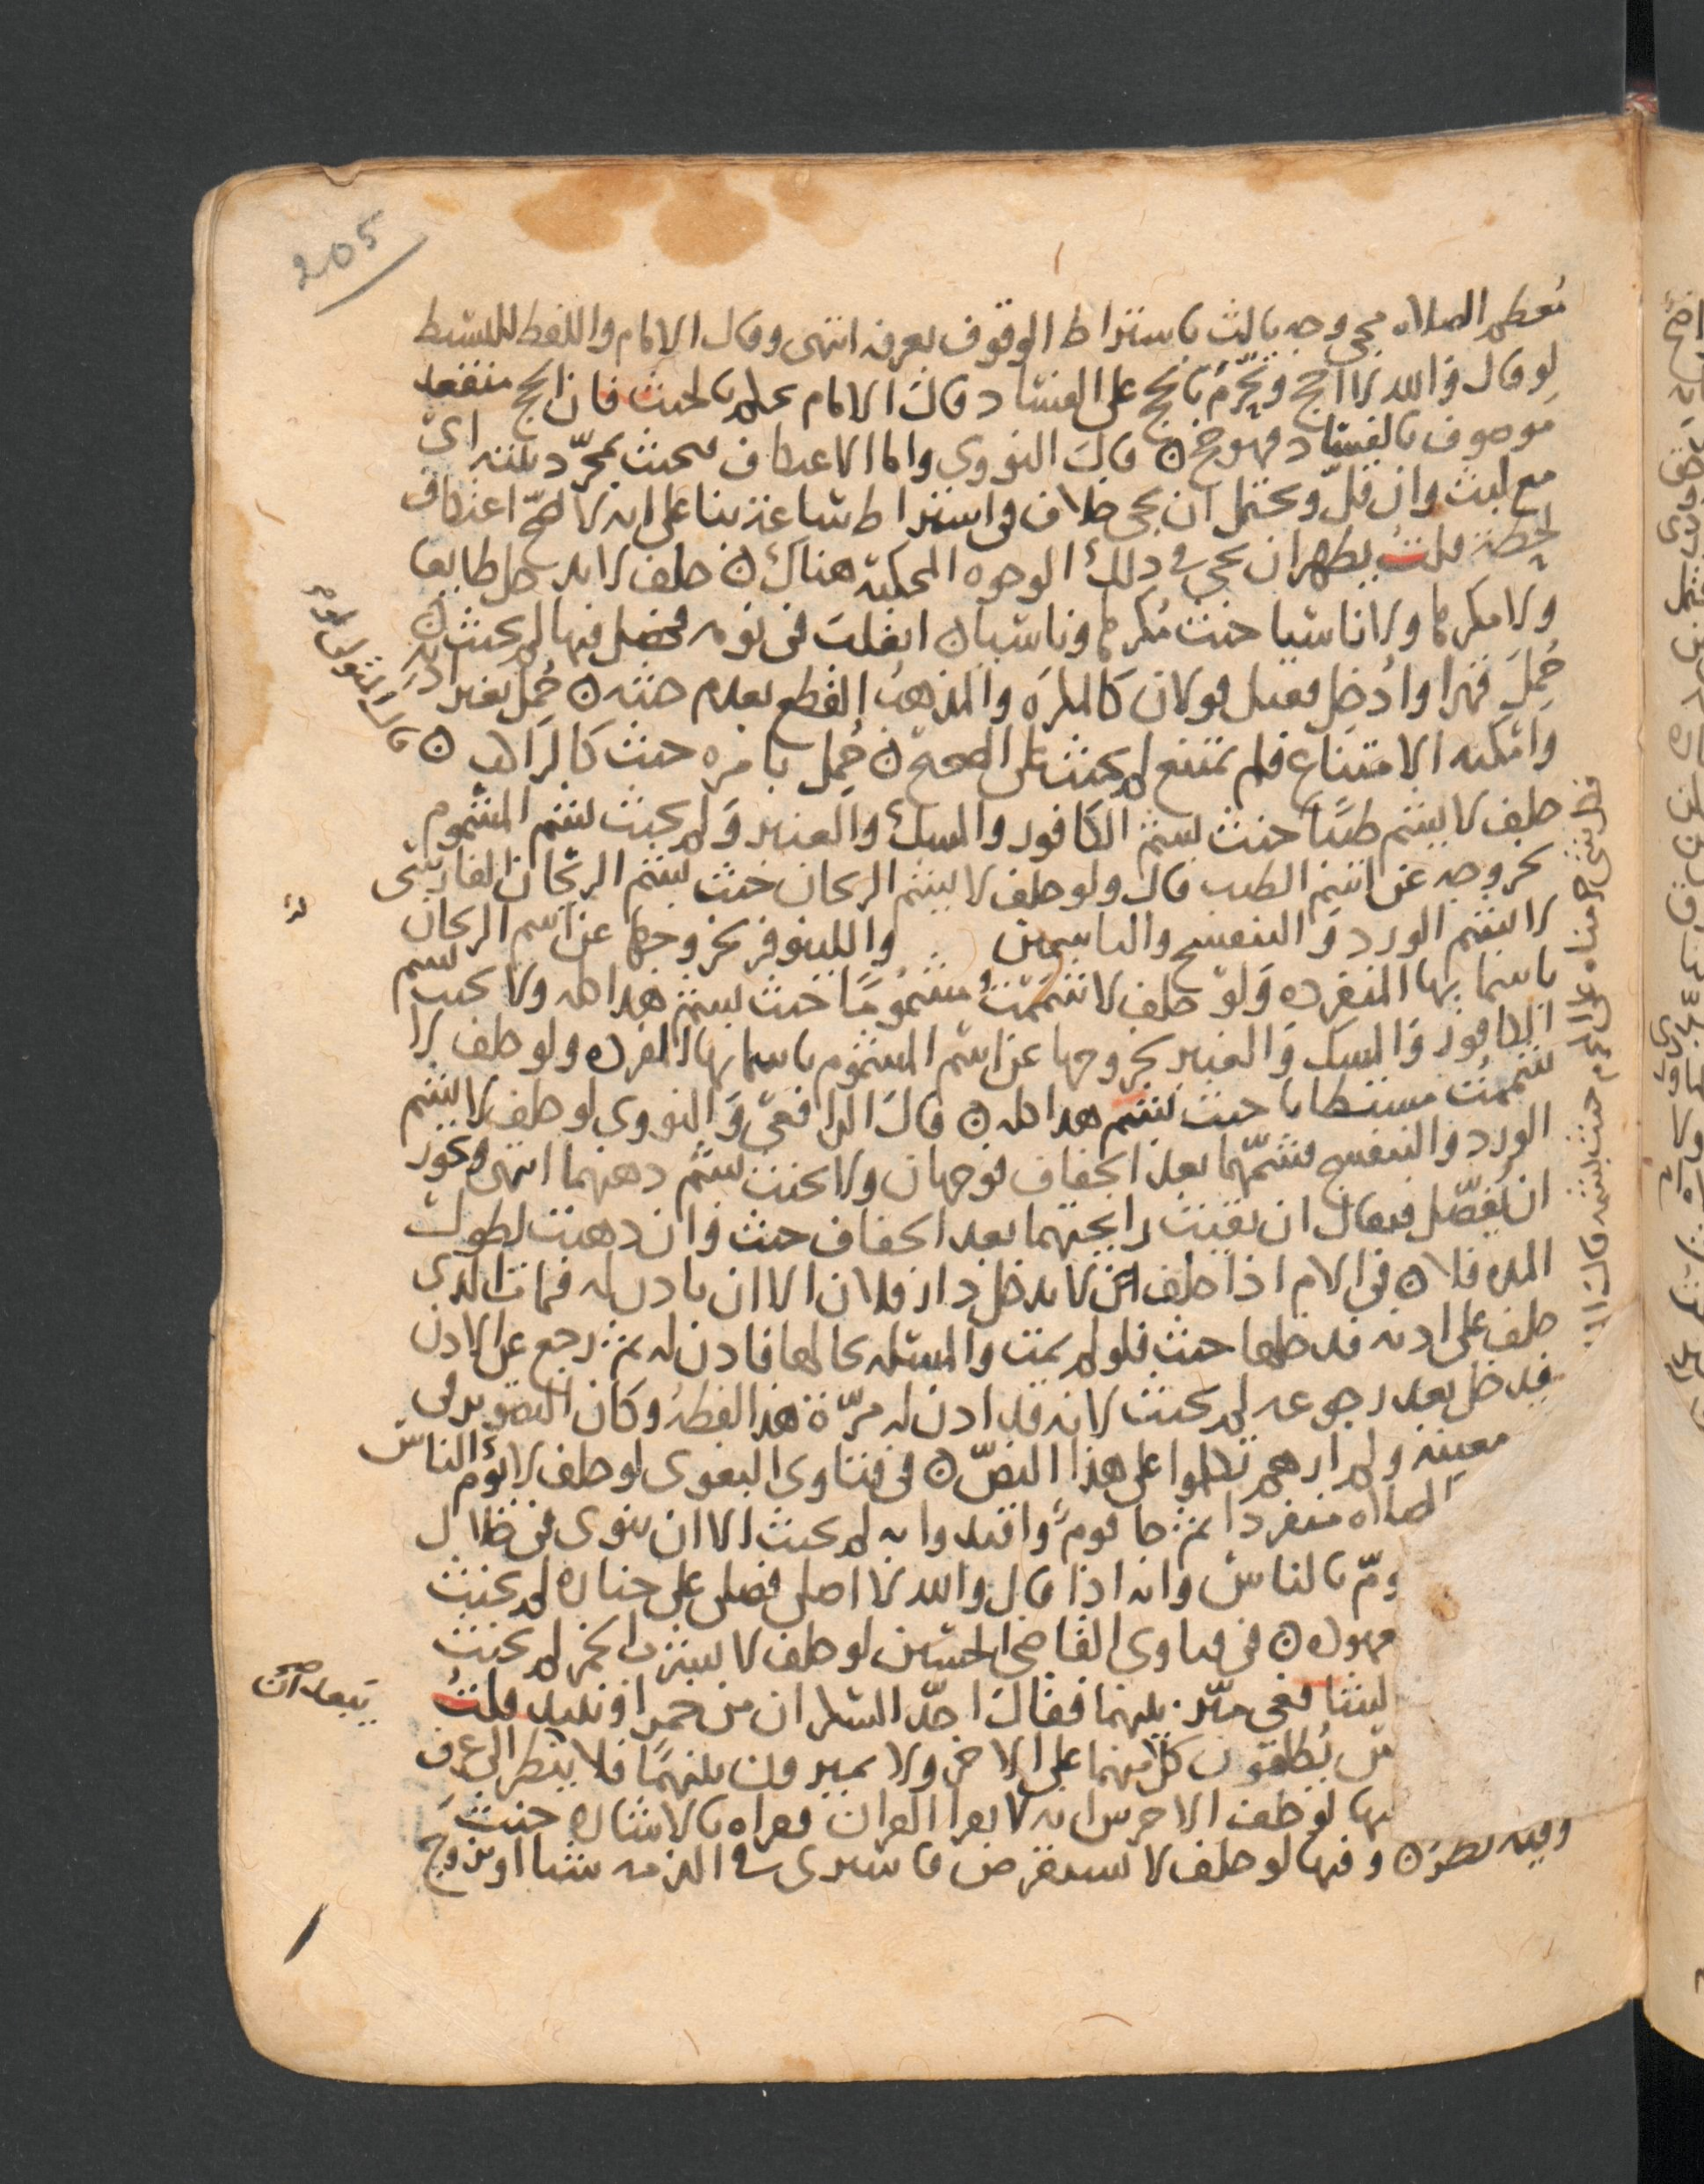 205
معظم الصلاه مجي وجه ثالث باشتراط الوقوف بعرفه انتهى وقال الامام واللفظ للبسيط
لو قال والله لا احج وتحرّم بالحج على الفساد قال الامام يحكم بالحنث فان الحج منعقد
موصوف بالفساد فهو حج ن قال النووي واما الاعتكاف فيحنث بمجرّد نيته اى
مع لبث وان قلّ ويحتمل ان يجي خلاف في اشتراط ساعة بنا على انه لا يصح اعتكاف
لحظة قلت يظهر ان يجي في ذلك الوجوه المحكية هناك ن حلف لا يدخل طايعا
ولا مكرها ولا ناسيا حنث مكرها وناسيا ن انقلب في نومه فحصل فيها لم يحنث ن
حُمل قهرا وادُخل فقيل قولان كالمكره والمذهب القطع بعدم حنثه ن حُمل بغير اذنه
وامكنه الامتناع فلم يمتنع لم يحنث على الصحيح ن حُمل بامره حنث كالراكب ن
حلف لا يشم طيبا حنث بشم الكافور والمسك والعنبر ولم يحنث بشم المشموم
لخروجه عن اسم الطيب قال ولو حلف لا يشم الريحان حنث بشم الريحان الفارسي
لا بشم الورد والبنفسج والياسمين واللينوفر لخروجها عن اسم الريحان
باسمايها المنفرده ولو حلف لا شممتُ مشمُومًا حنث بشم هذا كله ولا يحنث بشم
الكافور والمسك والعنبر لخروجها عن اسم المشموم باسمايها المفرده ولو حلف لا
شممتُ مستطابا حنث بشم هذا كله ن قال الرافعي والنووي لو حلف لا يشم
الورد والبنفسج فشمّهما بعد الجفاف فوجهان ولا يحنث بشم دهنهما انتهى ويجوز
ان يُفصّل فيقال ان بقيت رايحتهما بعد الجفاف حنث وان ذهبت لطول
المده فلا ن في الام اذا حلف ان لا يدخل دار فلان الا ان ياذن له فمات الذى
حلف على اذنه فدخلها حنث فلو لم يمت والمسئله بحالها فاذن له ثم رجع عن الاذن
فدخل بعد رجوعه لم يحنث لانه قد اذن له مرّة هذا لفظهُ وكان التصوير في
معينة ولم ارهم تكلموا على هذا النصّ ن في فتاوى البغوى لو حلف لا يؤم الناس
الصلاه منفردا ثم جا قوم واقتدوا به لم يحنث الا ان ينوى في خلال
ومّ بالناس وانه اذا قال والله لا اصلي فصلى على جنازه لم يحنث
في فتاوى القاضي الحسين لو حلف لا يشرب الخمر لم يحنث
بينهما فقال احدّ السكران من خمر او نبيد قلتُ
يُطلقون كل منهما على الاخر ولا يميزون بينهمَا فلا ينظر الى عرف
لو حلف الاخرس انه لا يقرا القران فقراه بالاشاره حنث
وفيه نظر ن وفيها لو حلف لا يستقرض فاشترى في الذمه شيا او تزوج